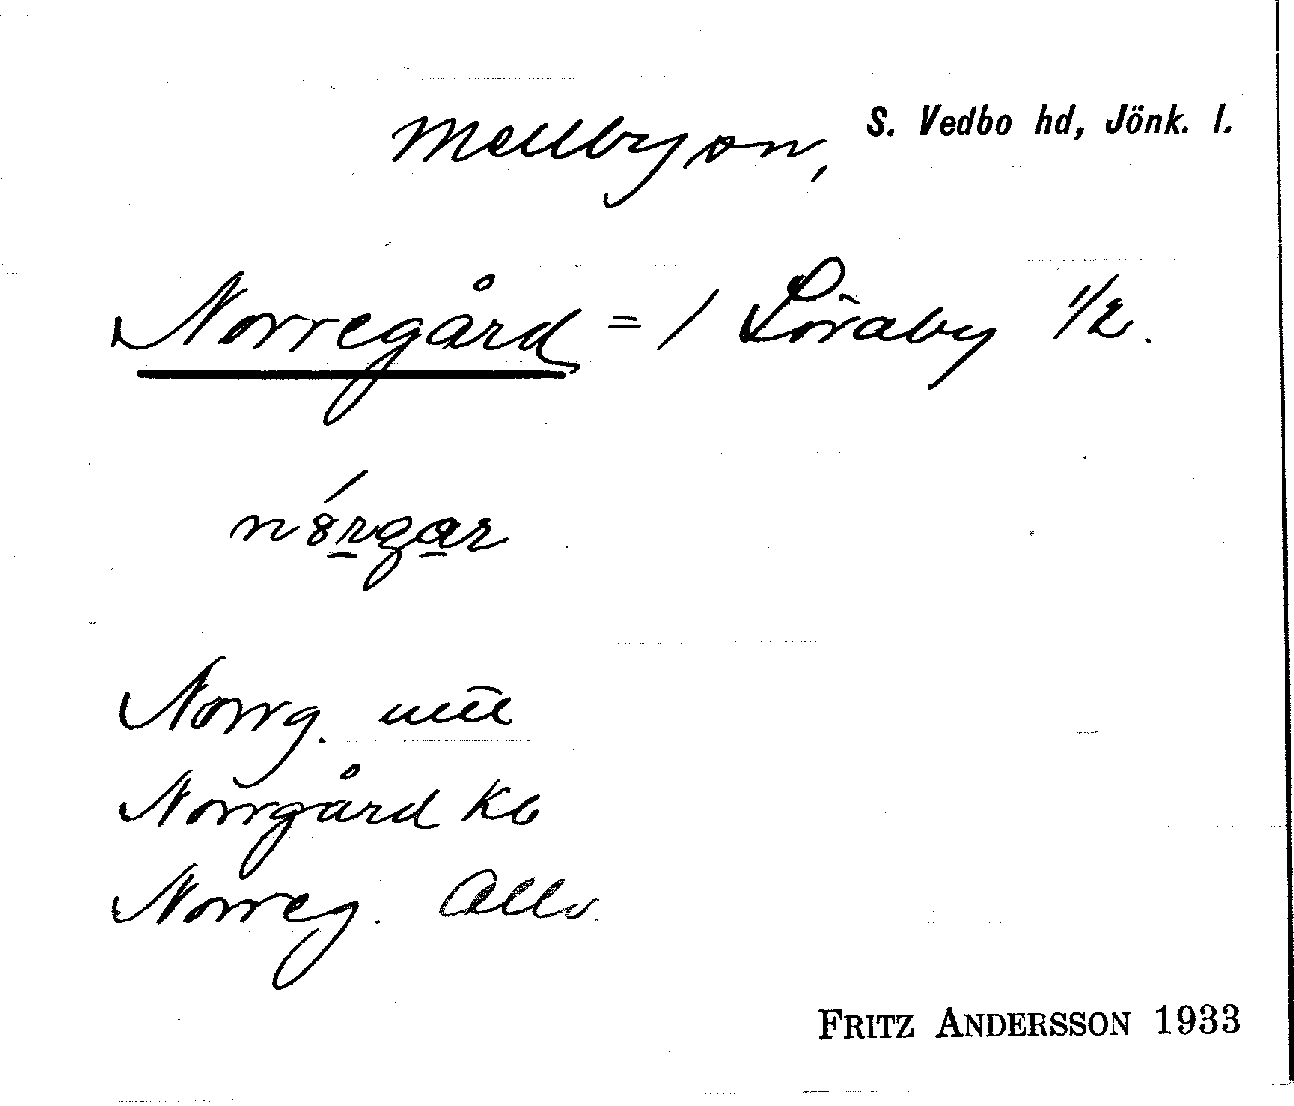 Mellby sn, S. Vedbo hd, Jönk. l.
Norregård = / Löraby 1/2.
Norrg. 
Norrgård Kb
Norreg. Allo.
FRITZ ANDERSSON 1933